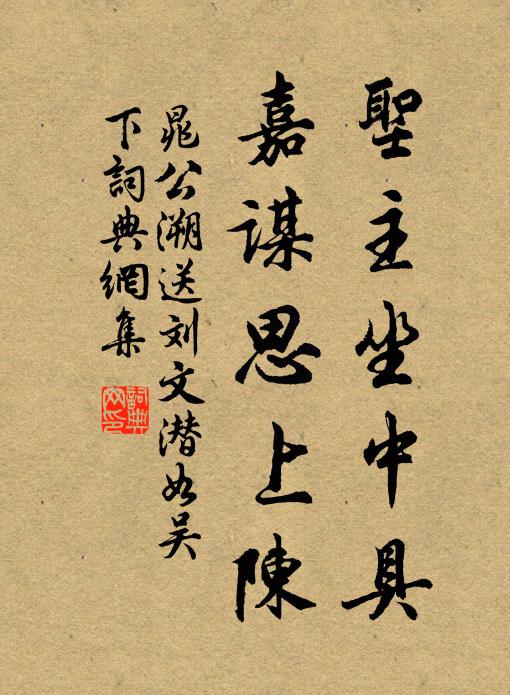 聖主坐中具
嘉謀思上陳
晁公溯送刘文潜如吴
下詞典網集
詞典
网印